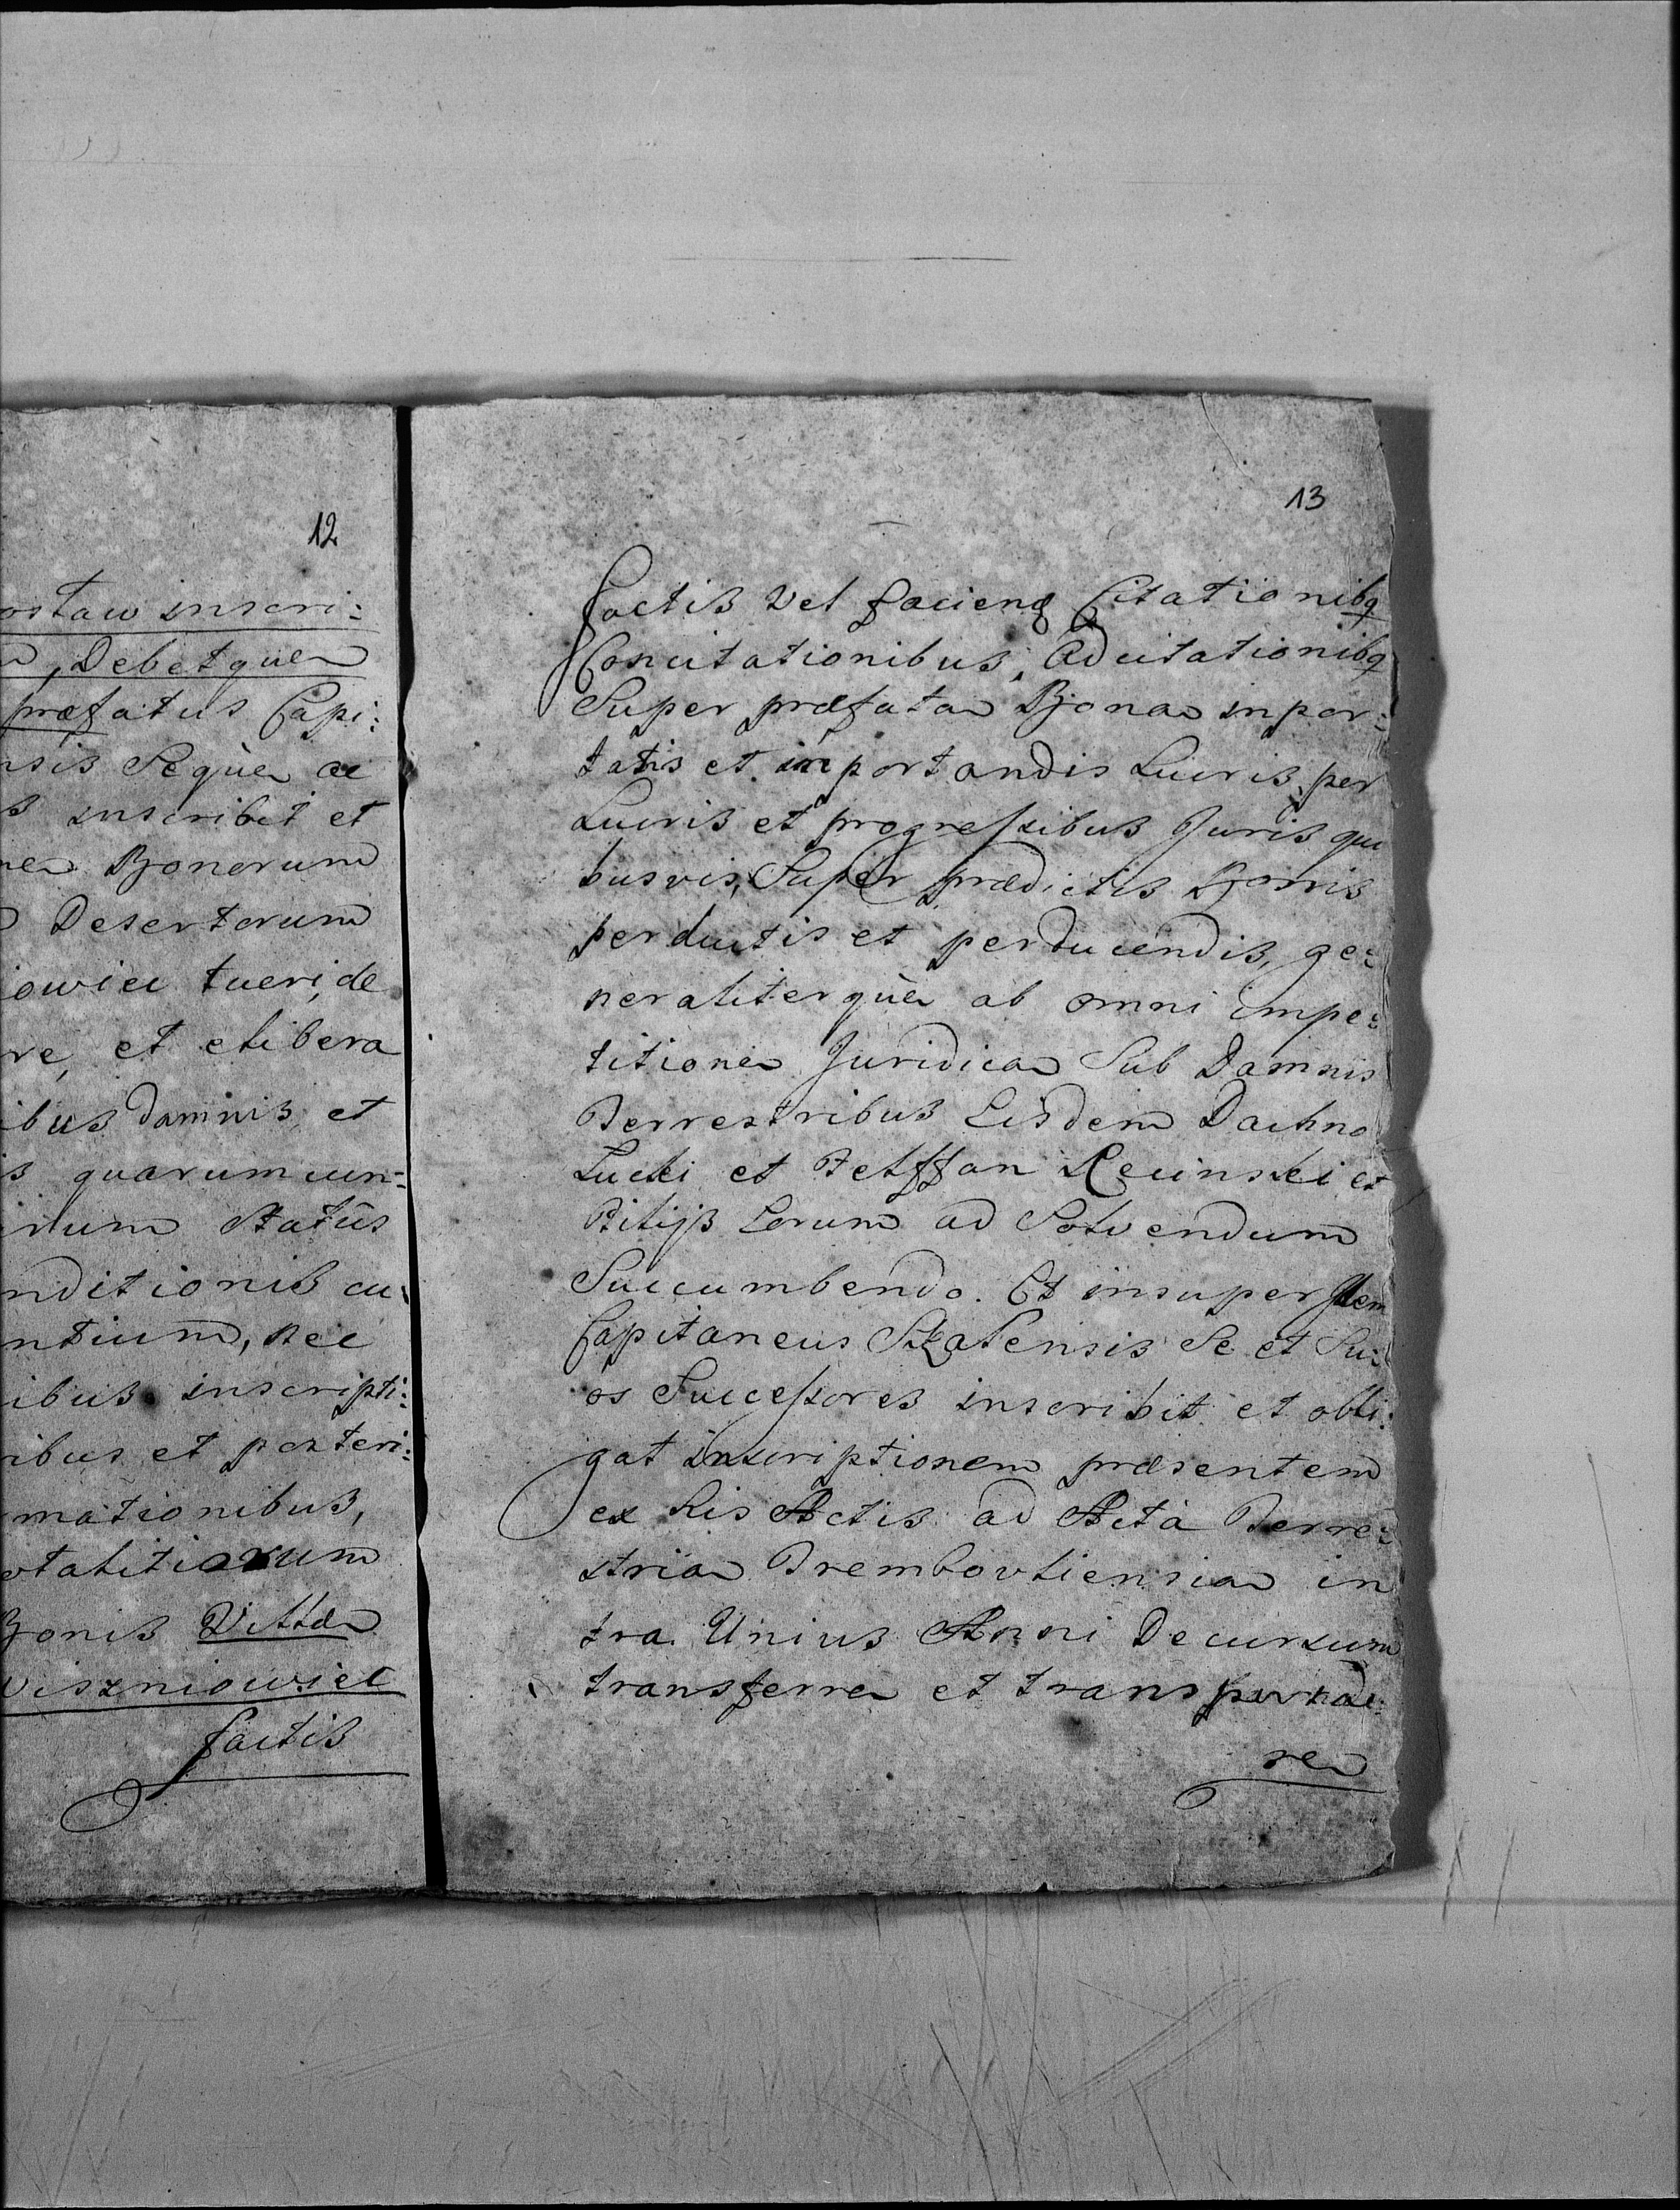 12
ostaw inscri:
, Debetque
præfatus Capi:
nsis Seque ac
s inscribit et
Bonorum
Desertorum
iowiec tueri, de
re, et elibera
ibus damnis et
s quarumcun=
Statûs
nditionis cu
ntium, nec
ibus inscripti:
ribus et posteri:
mationibus,
otalitiarum
Bonis Villæ
Wiszniowiec
factis
13
factis vel faciend Citationibq
Concitationibus, Adcitationibq
Super præfata Bona impor=
tatis et importandis Lucris, per
Lucris et progressibus Juris qui
busvis, Super prædictis Bonis
perductis et perducendis, ge:
neraliterque ab omni impe:
titione Juridica Sub Damnis
Terrestribus Eisdem Dachno
Lucki et Steffan Recinski et
Filijs Eorum ad Solvendum
Succumbendo. Et insuper Idem
Capitaneus Skalensis Se et Su:
os Successores inscribit et obli:
gat inscriptionem præsentem
ex his Actis ad Acta Terre:
stria Trembovliensia in
tra Unius Anni Decursum
transferre et transportade:
re